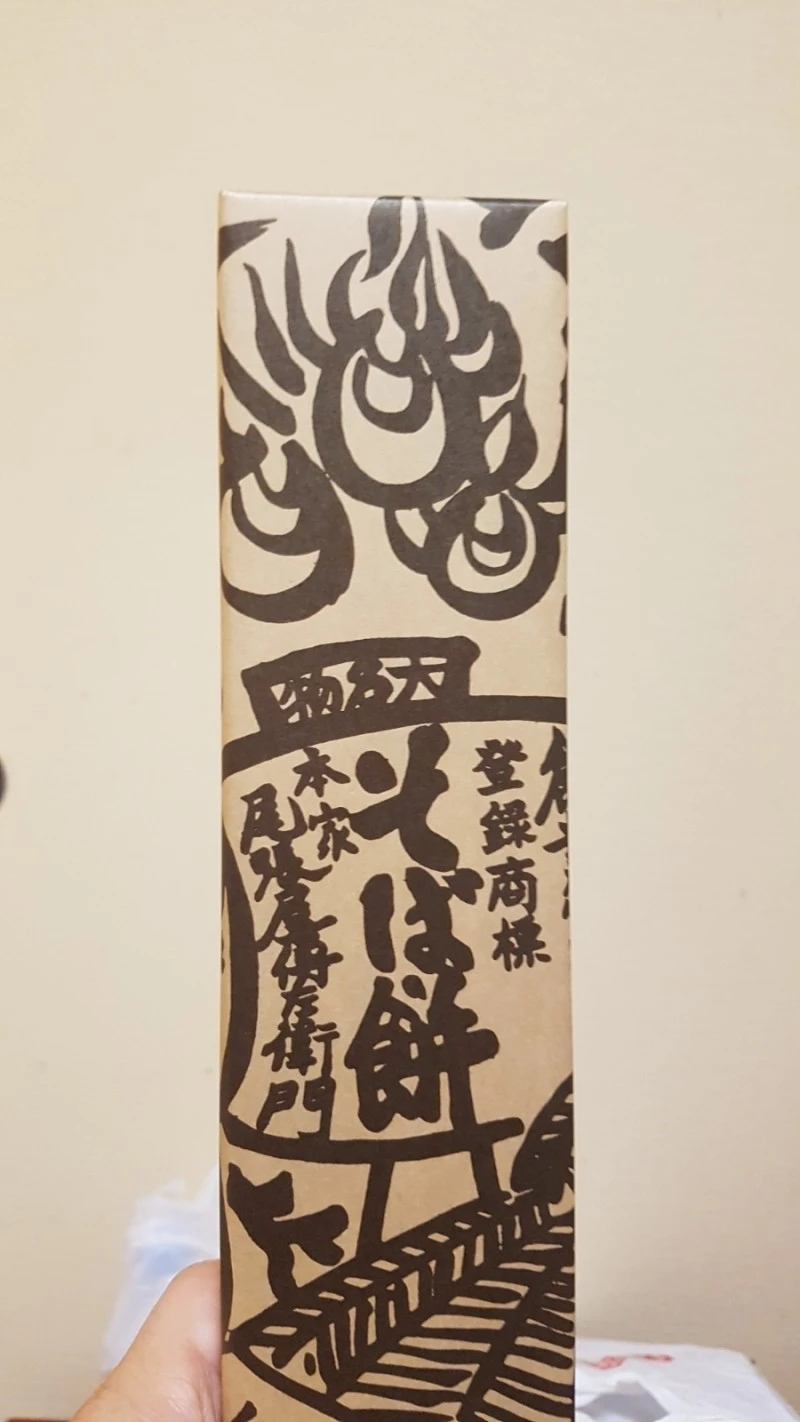 大名物
登録商標
そば餅
本家
尾張屋傳左衛門